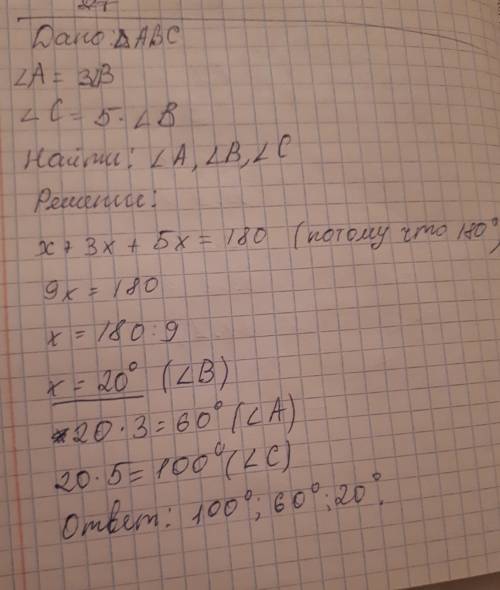 27
Дано: ΔABC
∠A = 3∠B
∠C = 5 · ∠B
Найти: ∠A, ∠B, ∠C
Решение:
x + 3x + 5x = 180 (потому что 180°)
9x = 180
x = 180 : 9
x = 20° (∠B)
20 · 3 = 60° (∠A)
20 · 5 = 100° (∠C)
Ответ: 100°; 60°; 20°.